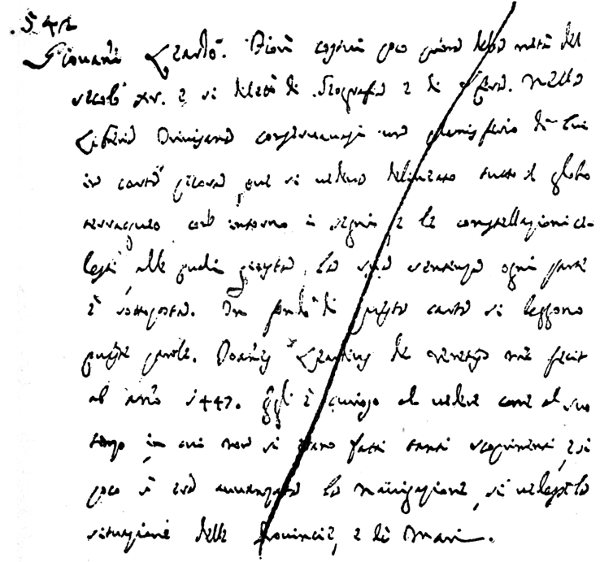 Giovanni Leardo. Fiorì cogniti poco prima della metà del
secolo XV. e si dilettò di Geografia e di sfera. Nella
Libreria conservavasi uno planisferio di lui
in carta pecora, ove si vedeva delineato tutto il globo
terracqueo coll'intorno i segni, e le constellazioni ce-
lesti, alle quali giusta la sua sentenza ogni parte
è sottoposta. In fondo di questa carta si leggono
queste parole. Joanes Leardus de Venetijs me fecit
ab anno 1447. Egli è curioso al vedere come al suo
tempo in cui non si erano fatti tanti scoprimenti, e si
poco si era avanzata la navigazione, si vedesse la
situazione delle Provincie, e di Mari.